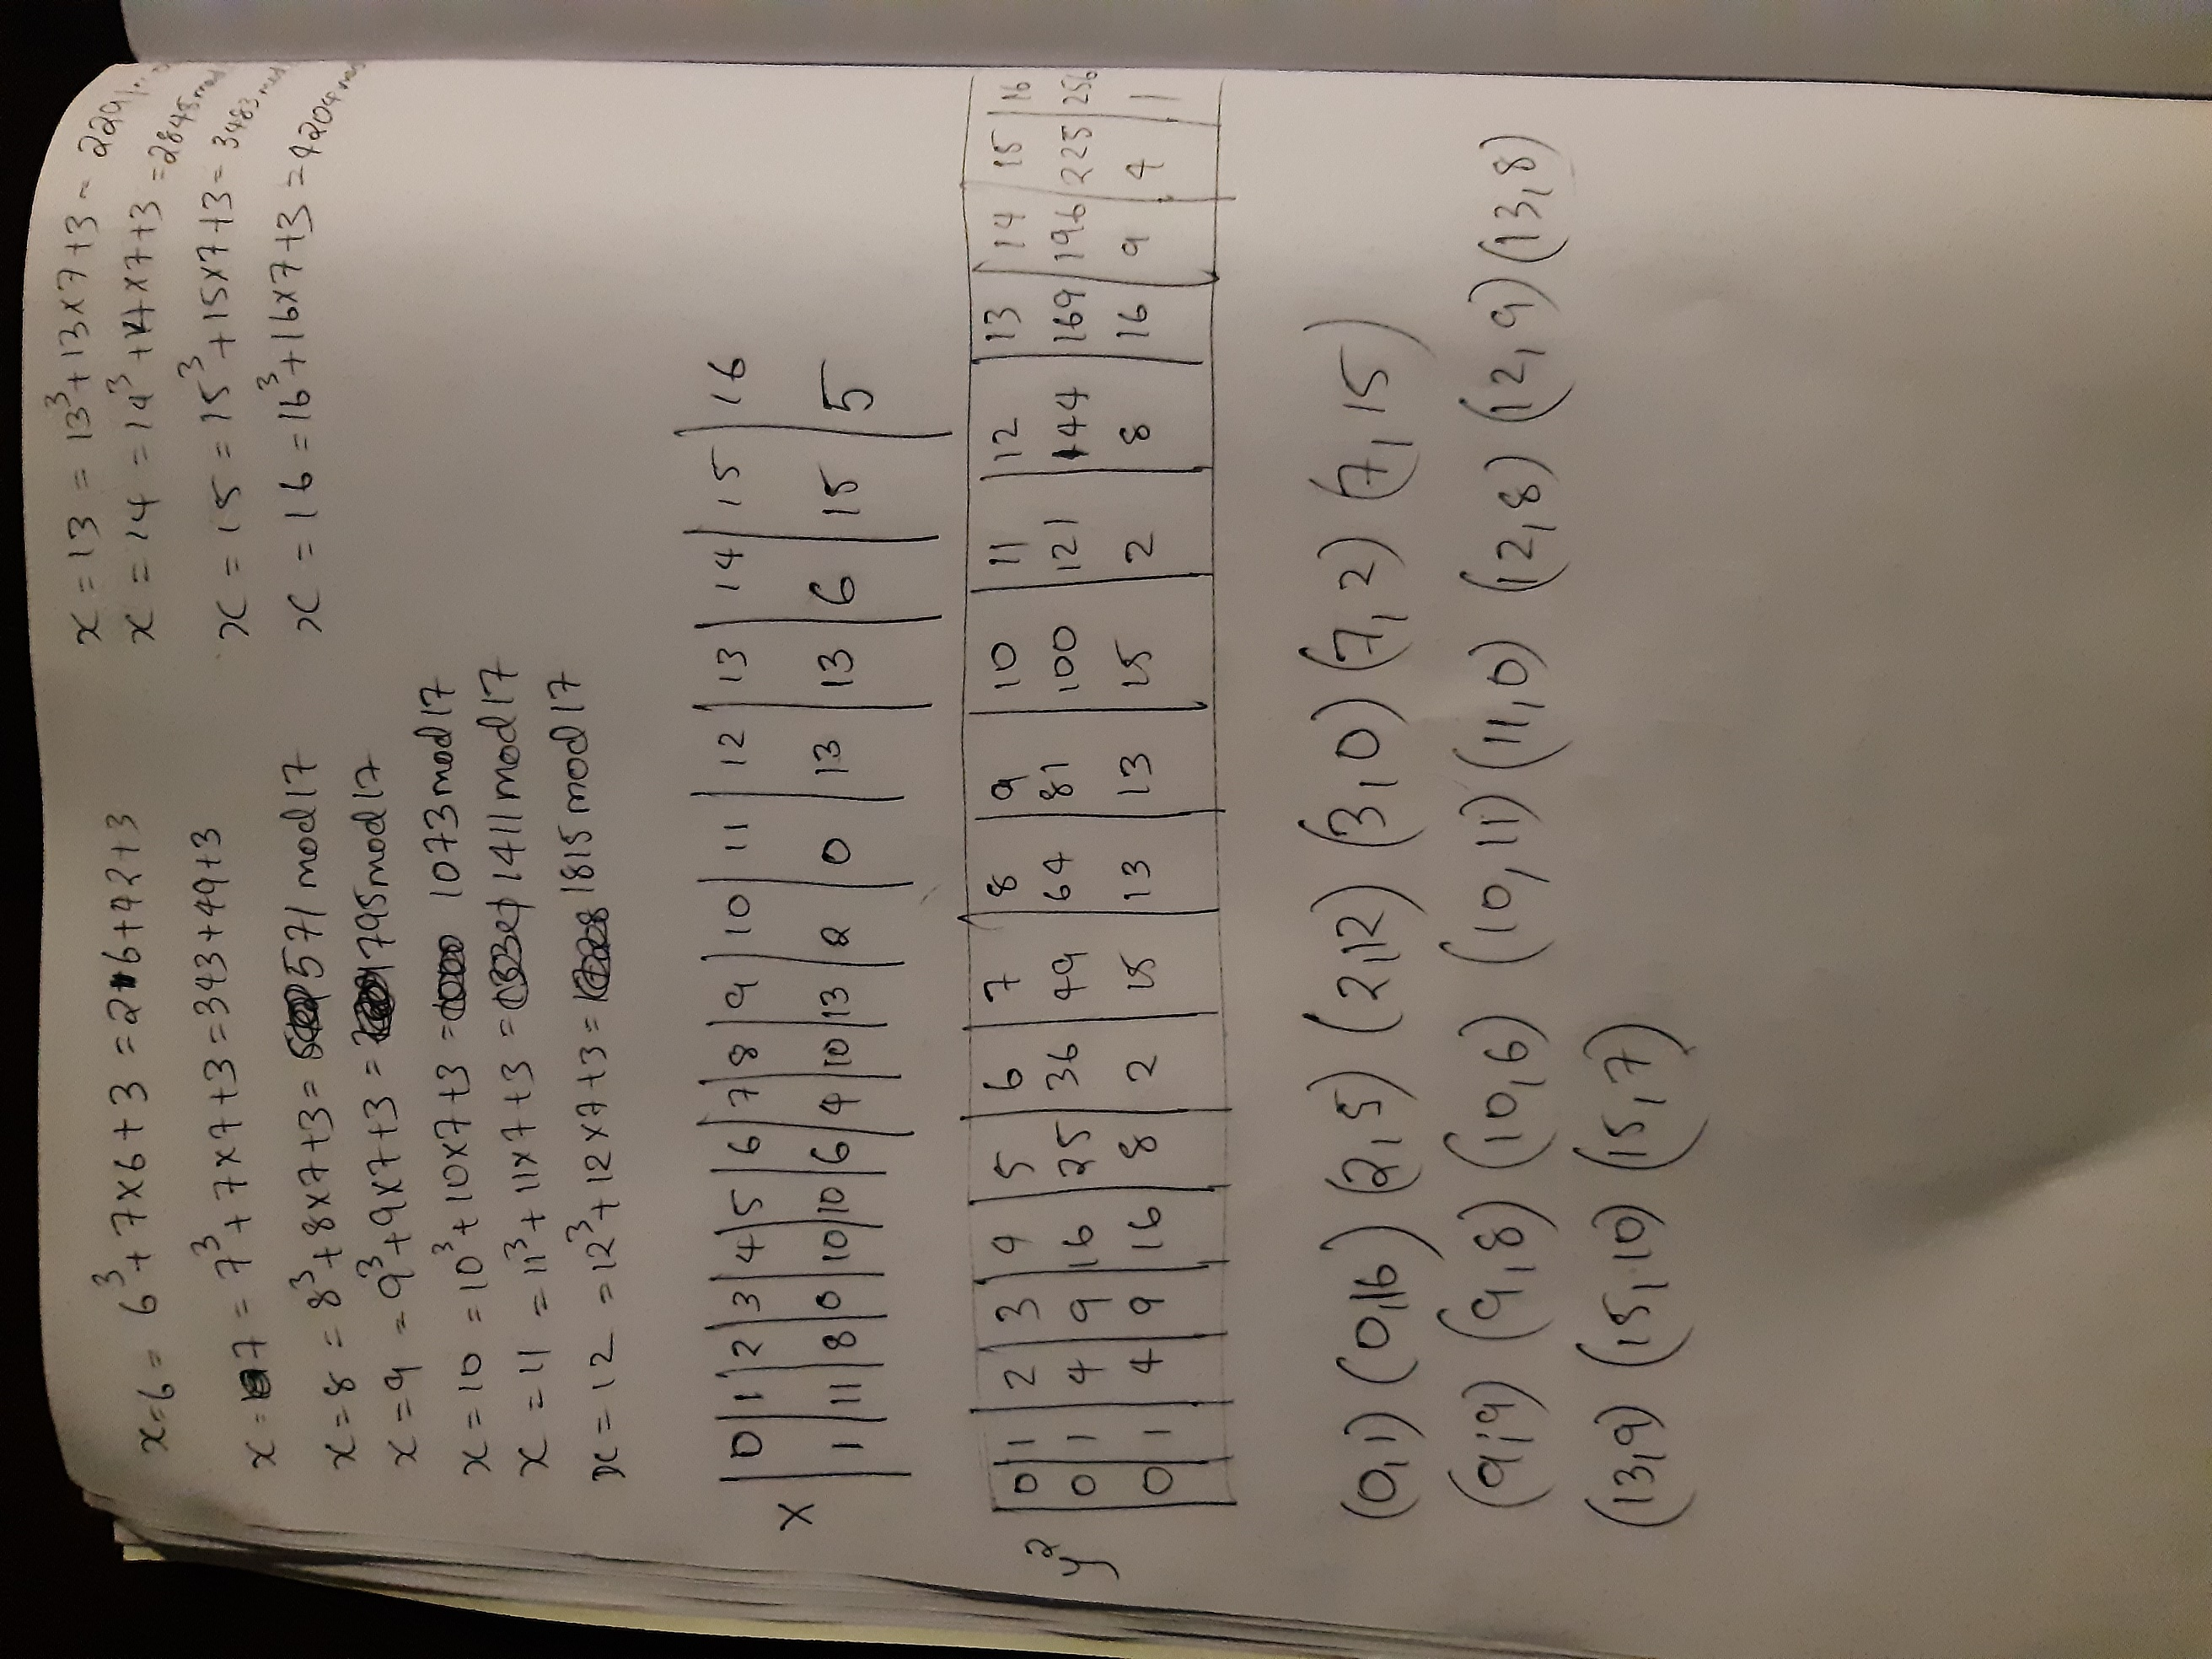 x=6 = 6³+7×6+3 = 216+42+3
x=7 = 7³+7×7+3=343+49+3
x=8 = 8³+8×7+3= 571 mod 17
x=9 = 9³+9×7+3= 795 mod 17
x=10 = 10³+10×7+3= 1073 mod 17
x=11 = 11³+11×7+3 = 1411 mod 17
x=12 = 12³+12×7+3= 1815 mod 17
x=13 = 13³+13×7+3= 2291
x=14 = 14³+14×7+3=2845 mod
x=15 = 15³+15×7+3=3483 mod
x=16=16³+16×7+3=4204 mod
x 0 1 2 3 4 5 6 7 8 9 10 11 12 13 14 15 16
1 11 8 0 10 10 6 4 10 13 2 0 13 13 6 15 5
0 1 2 3 4 5 6 7 8 9 10 11 12 13 14 15 16
y² 0 1 4 9 16 25 36 49 64 81 100 121 144 169 196 225 256
0 1 4 9 16 8 2 15 13 13 15 2 8 16 9 4 1
(0,1) (0,16) (2,5) (2,12) (3,0) (7,2) (7,15)
(9,9) (9,8) (10,6) (10,11) (11,0) (12,8) (12,9) (13,8)
(13,9) (15,10) (15,7)